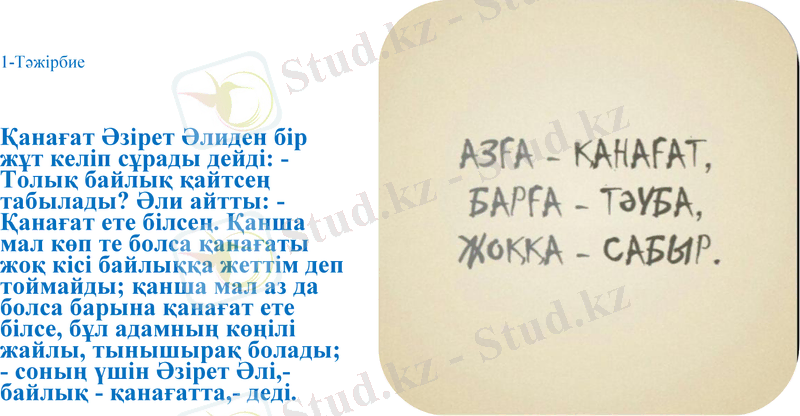 1-Тәжірбие
Қанағат Әзірет Әлиден бір
жұт келіп сұрады дейді: -
Толық байлық қайтсең
табылады? Әли айтты: -
Қанағат ете білсең. Қанша
мал көп те болса қанағаты
жоқ кісі байлыққа жеттім деп
тоймайды; қанша мал аз да
болса барына қанағат ете
білсе, бұл адамның көңілі
жайлы, тынышырақ болады;
- соның үшін Әзірет Әлі,-
байлық - қанағатта,- деді.
АЗҒА - ҚАНАҒАТ,
БАРҒА - ТӘУБА,
ЖОҚҚА - САБЫР.
Stud.kz - Stud.kz
Stud.kz - Stud.kz
Stud.kz - Stud.kz